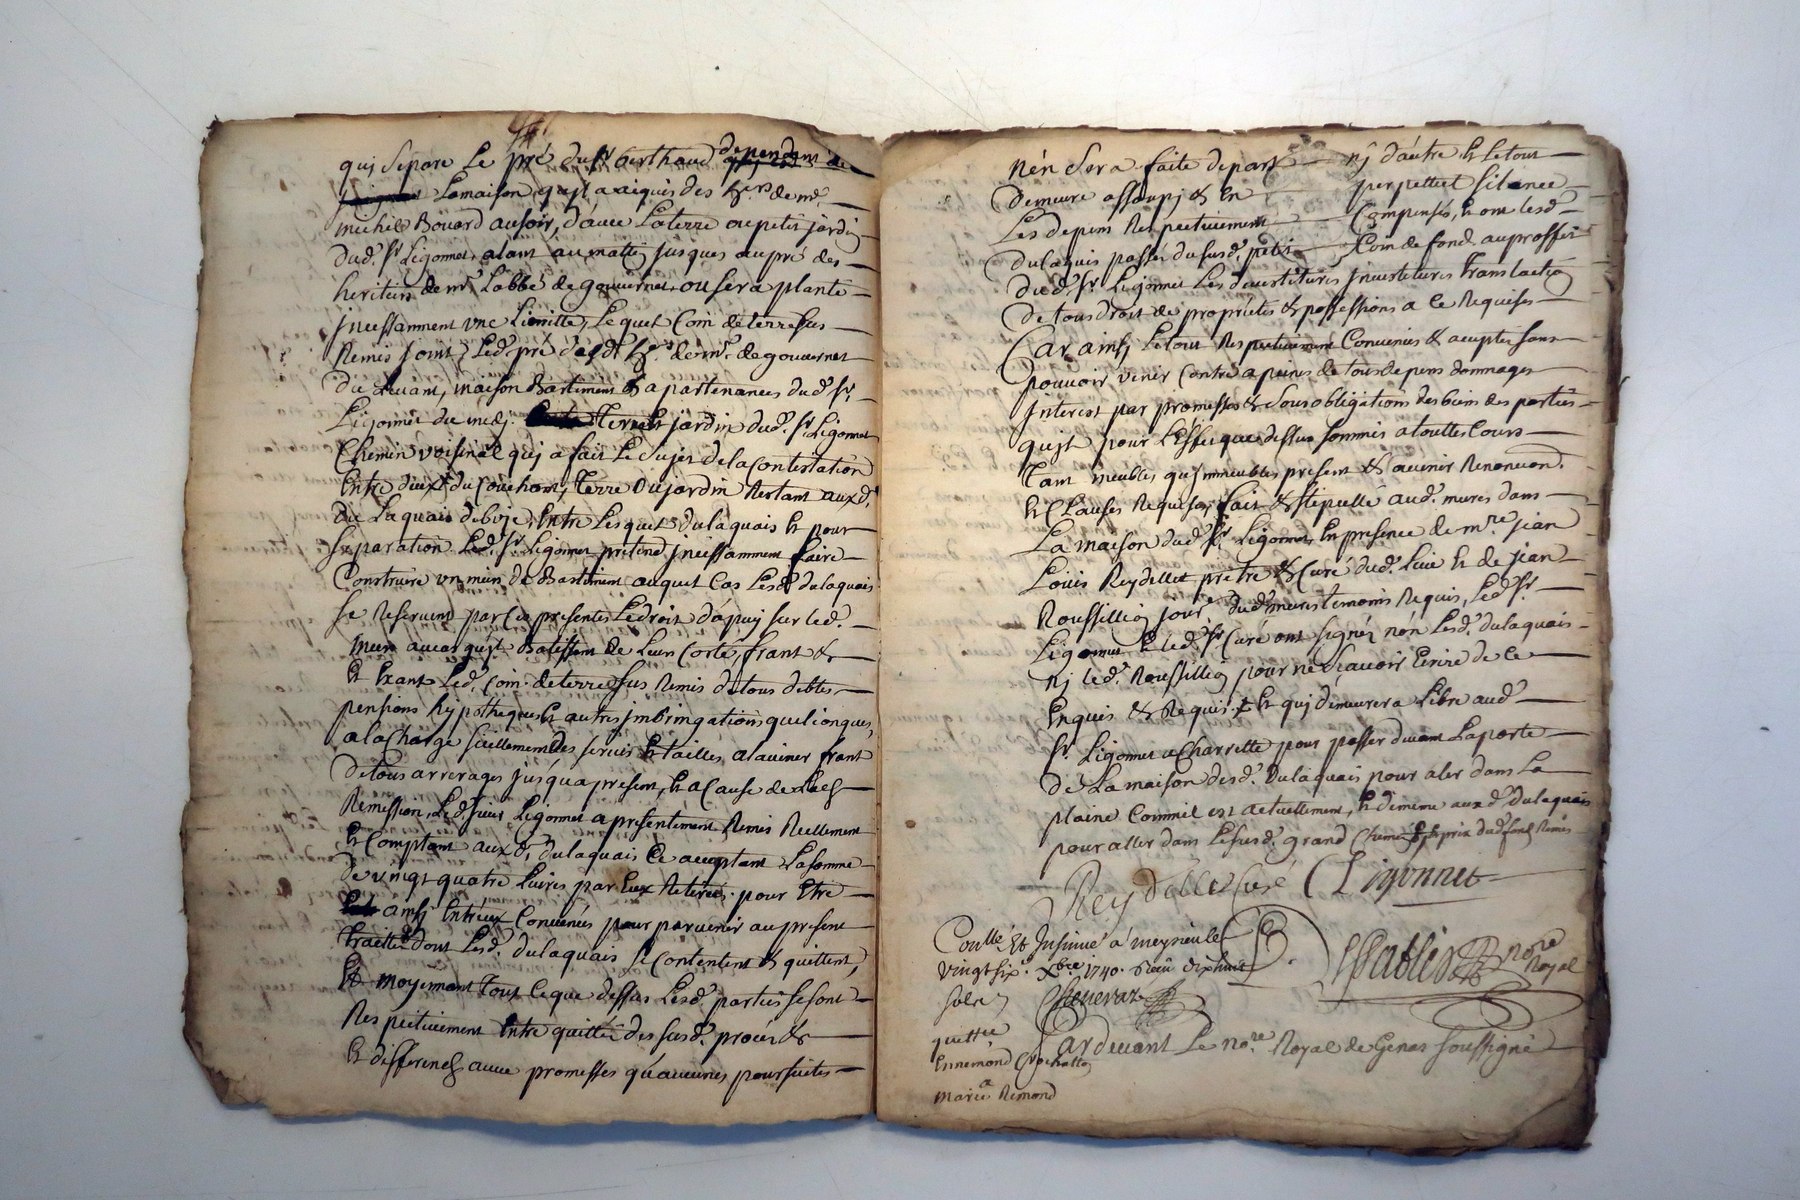 quj separe Le pré du sr berthaud dependem de
Lamaison qu'jl a aiquis des hrs. de mr.
michel Bouard au soir, d'avec La terre ou petit jardin
dud. sr Ligonnet, alant au mattin jusques au pré des
heritiers de mr. Labbé de gouvernet, ou sera planté
jncessamment vne Limitte, Lequel Coin de terre sus
Remis joint Led. pré desd. hrs. de mr. de gouvernet
du Levant, maison Bastiment & apartenances dud. sr.
Ligonnet du midj. Terre & jardin dud. sr. Ligonnet
Chemin voisinal quj a fait Le sujet de la Contestation
Entre eux du Couchant, Terre ou jardin Restant auxd.
du Laquais de bize, Entre Lesquels dulaquais & pour
separation Led. sr. Ligonnet pretend jncessamment faire
Construire vn mur de Bastiment auquel Cas Lesd. dulaquais
se Reservent par Ces presentes Le droit d'apuy sur led.
mur au cas qu'jl Batissent de Leur Corté, franc &
& Exant Led. Coin de terre sus Remis de tous debtes
pensions hypotheques & autres jmbringations quelconques,
a la Charge seullement des servis & tailles a l'avenir franc
de tous arrerages jusqu'a present, & a Cause de Lad.
Remission, Led. sieur Ligonnet a presentement Remis Reellement
& Comptant auxd. dulaquais Ce acceptant La somme
de vingt quatre Livres par Eux Retirés. pour Etre
ainsj Entr'eux Convenus pour parvenir au present
traitté dont Lesd. dulaquais se Contentent & quittent,
Et moyennant tout Ce que dessus Lesd. parties se sont
Respectivement Entre quitté des susd. procés &
& differends avec promesses qu'aucunes poursuites
n'en sera faite de part nj d'autre & Le tout
demeure assoupj & En perpettuel silence
Les depens Respectivement Compensés, & ont lesd.
dulaquis passés du susd. petit Coin de fond au proffit
dud. sr. Ligonnet Les devestitures jnvestitures Translaction
de tous droit de propriétés & possessions a Ce Requises
Car ainsj Le tout Respectivement Convenus & accepter sans
pouvoir venir Contre a peines de tous depens dommages
jnterest par promesses & sous obligations des biens des parties
qu'jt pour L'effet que dessus sommis a touttes Cours
Tant meubles qu'jmmeubles present & avenir Renonciond.
& Clauses Requises, fait & stipullé aud. mures dans
La maison dud. sr. Ligonnet, En presence de mre. jean
Louis Reydellet prêtre & Curé dud. Lieu & de jean
Roussillion jourr. dud. mures temoins Requis, Led. sr
Ligonnet & led. sr. Curé ont signéz non Lesd. dulaquais
nj led. Roussillion pour ne sçavoir Ecrire de Ce
Enquis & Requis. & quj demeurera Libre aud.
sr. Ligonnet a Charrette pour passer devant La porte
de La maison desd. dulaquais pour aler dans La
plaine Comme il est actuellement, & de meme auxd. dulaquais
pour aller dans Le susd. grand Chemin, & prix dud. fond Remis
Reydellet Curé Ligonnet
Conllé. Et Insinué a meyrieule
vingt six. Xbre. 1740. Reçu dix huit
sols
Chenevaz
Pattier nore. Royal
quittce
Ennemond Crochatton
a
Marie Remond
Pardevant Le nore. Royal de Genas soussigné